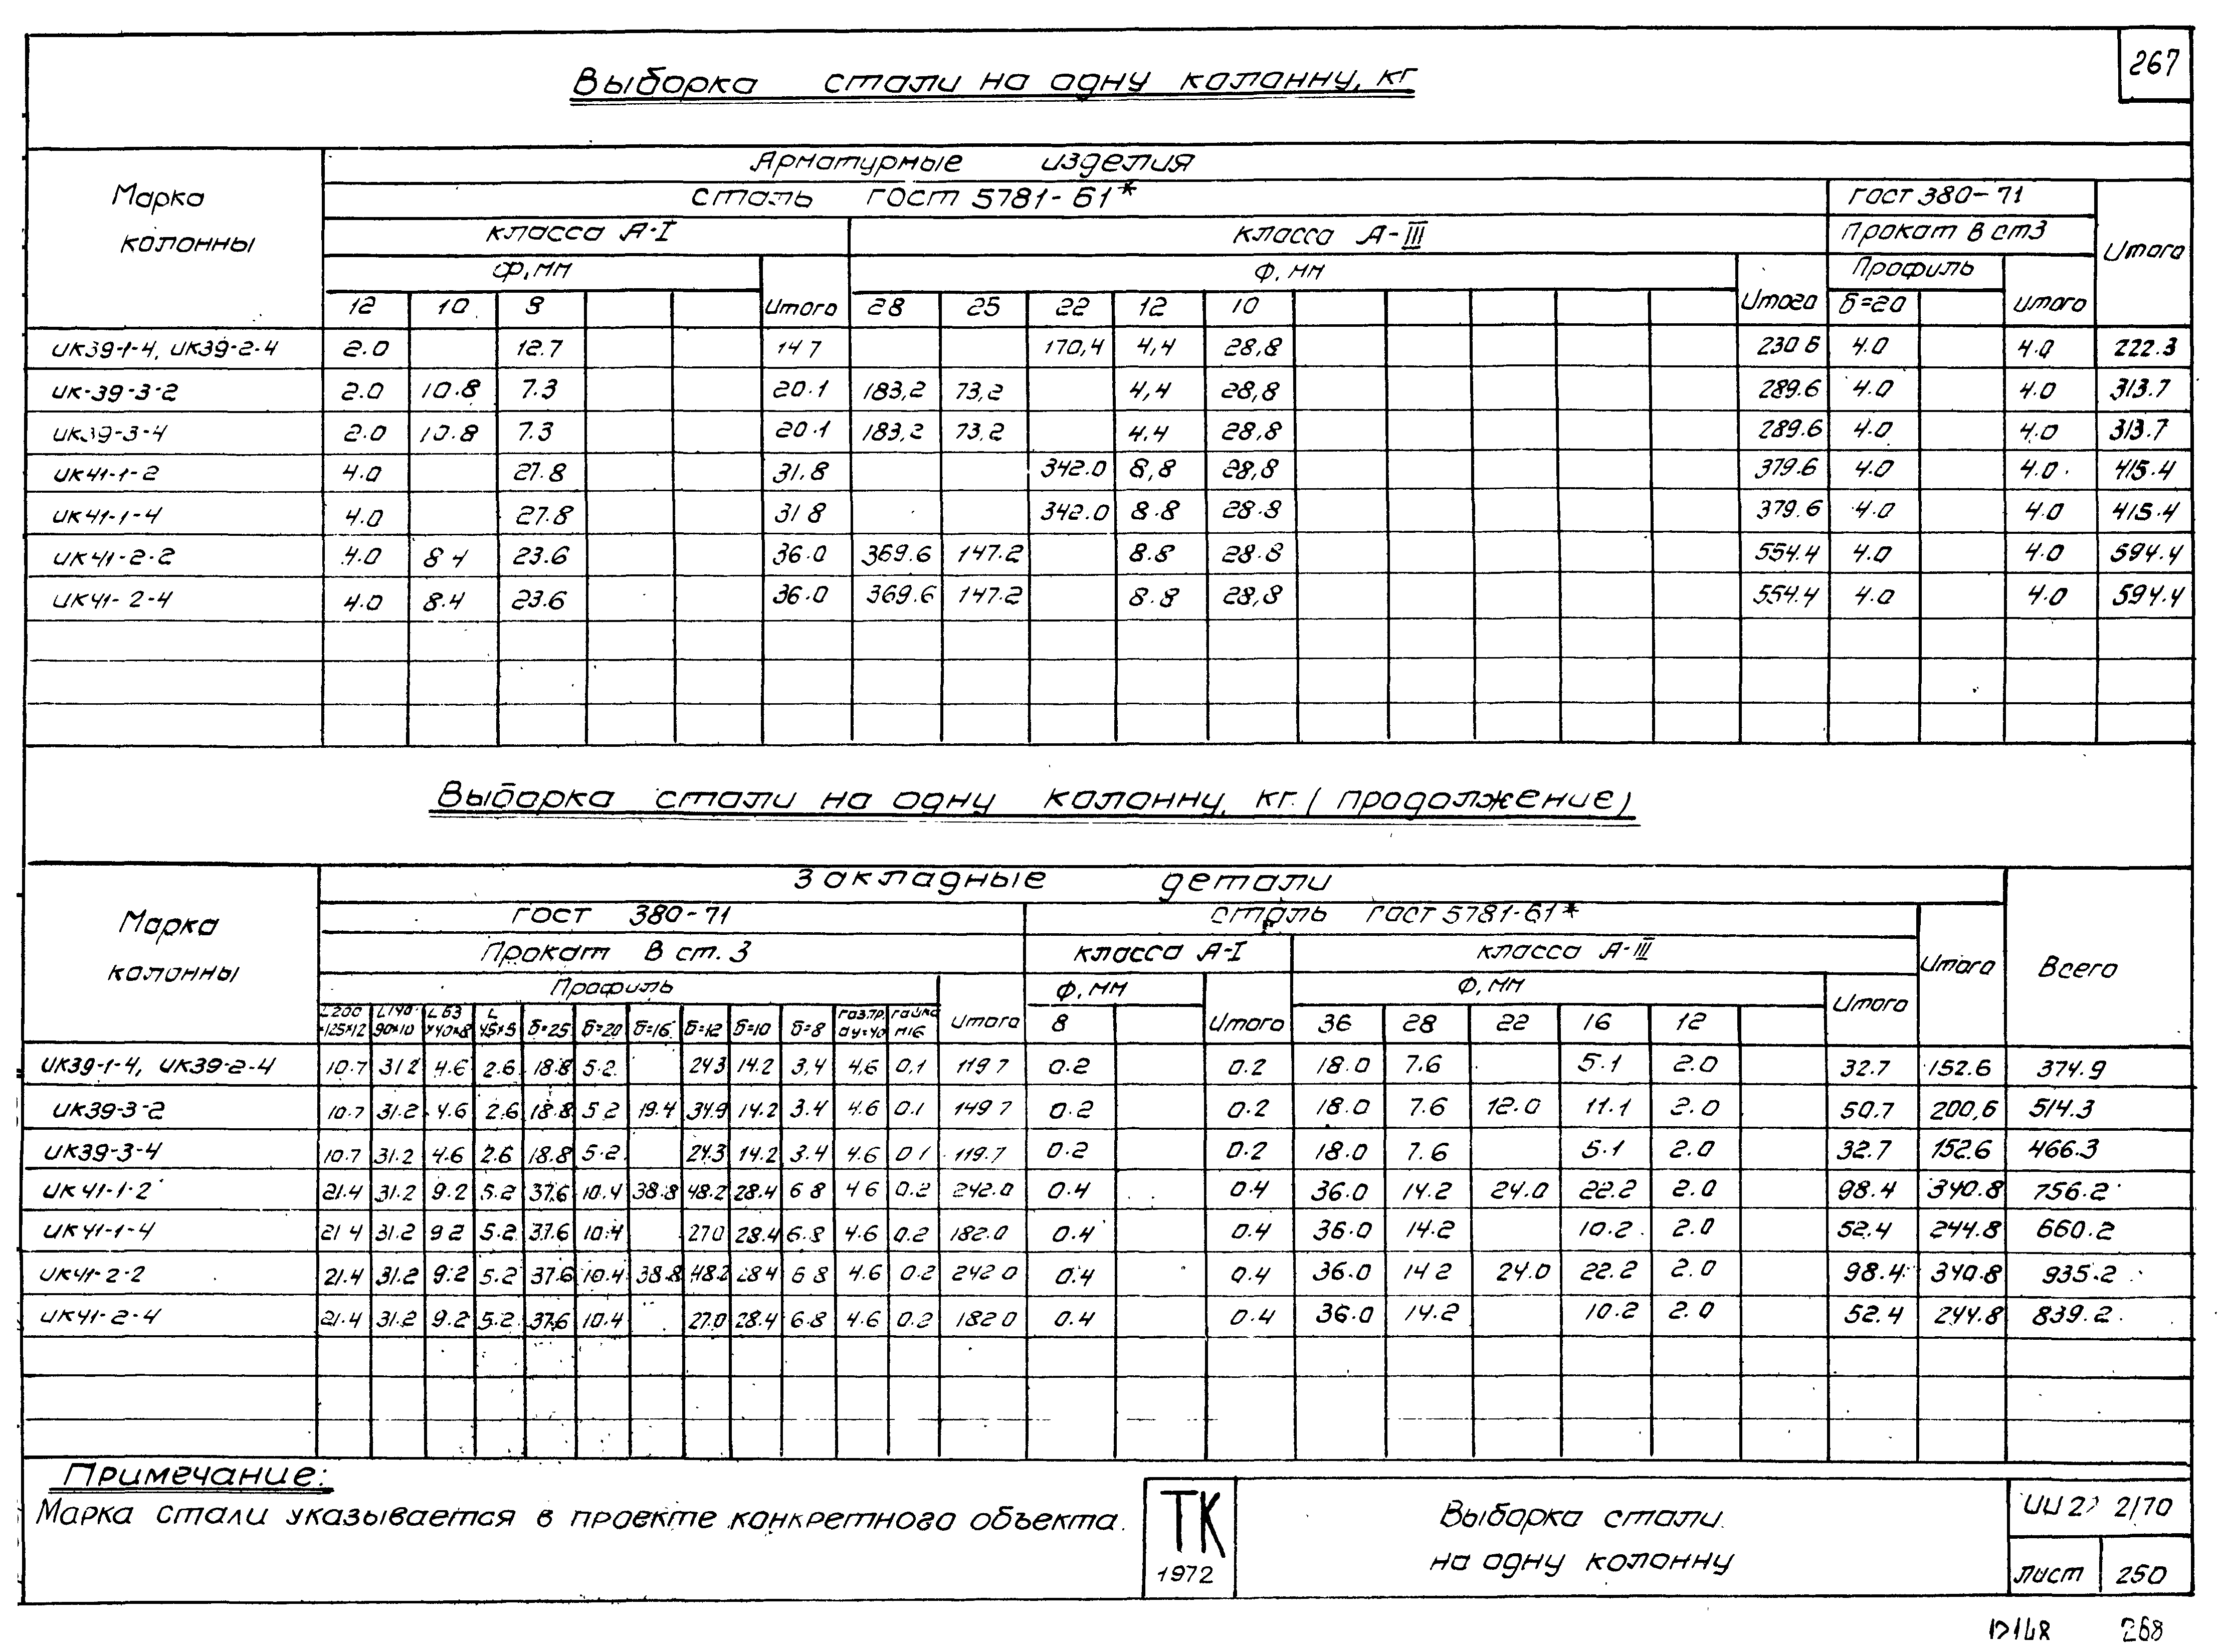 267
Выборка стали на одну колонну, кг
Марка колонны
Арматурные изделия
сталь ГОСТ 5781-61*
ГОСТ 380-71
класса А-I
класса А-III
Прокат В ст3
Итого
Ф, мм
Ф, мм
Профиль
12 10 8 Итого 28 25 22 12 10 Итого δ=20 Итого
ИК39-1-4, ИК39-2-4 2.0 12.7 14 7 170,4 4,4 28,8 230 6 4.0 4.0 222.3
ИК-39-3-2 2.0 10.8 7.3 20.1 183,2 73,2 4,4 28,8 289.6 4.0 4.0 313.7
ИК39-3-4 2.0 10.8 7.3 20.1 183,2 73,2 4.4 28,8 289.6 4.0 4.0 313.7
ИК41-1-2 4.0 27.8 31.8 342.0 8,8 28,8 379.6 4.0 4.0 415.4
ИК41-1-4 4.0 27.8 31 8 342.0 8.8 28.8 379.6 4.0 4.0 415.4
ИК41-2-2 4.0 8 4 23.6 36.0 369.6 147.2 8.8 28.8 554.4 4.0 4.0 594.4
ИК41-2-4 4.0 8.4 23.6 36.0 369.6 147.2 8.8 28,8 554.4 4.0 4.0 594.4
Выборка стали на одну колонну, кг. (продолжение)
Марка колонны
Закладные детали
ГОСТ 380-71
сталь ГОСТ 5781-61*
Прокат В ст. 3
класса А-I
класса А-III
Итого
Всего
Профиль
Ф, мм
Ф, мм
L200×125×12 L140×90×10 L63×40×8 L45×5 δ=25 δ=20 δ=16 δ=12 δ=10 δ=8 газ.тр. dу=40 гайка М16 Итого 8 Итого 36 28 22 16 12 Итого
ИК39-1-4, ИК39-2-4 10.7 31 2 4.6 2.6 18.8 5.2 24.3 14.2 3,4 4,6 0,1 119 7 0.2 0.2 18.0 7.6 5.1 2.0 32.7 152.6 374.9
ИК39-3-2 10.7 31.2 4.6 2.6 18.8 5 2 19.4 34.9 14.2 3.4 4.6 0.1 149 7 0.2 0.2 18.0 7.6 12.0 11.1 2.0 50.7 200,6 514.3
ИК39-3-4 10.7 31.2 4.6 2.6 18.8 5.2 24.3 14.2 3.4 4.6 0 1 119.7 0.2 0.2 18.0 7.6 5.1 2.0 32.7 152.6 466.3
ИК41-1-2 21.4 31.2 9.2 5.2 37.6 10.4 38.8 48.2 28.4 6 8 4 6 0.2 242.0 0.4 0.4 36.0 14.2 24.0 22.2 2.0 98.4 340.8 756.2
ИК41-1-4 21 4 31.2 9 2 5.2 37.6 10.4 27.0 28.4 6.8 4.6 0.2 182.0 0.4 0.4 36.0 14.2 10.2 2.0 52.4 244.8 660.2
ИК41-2-2 21.4 31.2 9.2 5.2 37.6 10.4 38.8 48.2 28 4 6 8 4.6 0.2 242 0 0.4 0.4 36.0 14 2 24.0 22.2 2.0 98.4 340.8 935.2
ИК41-2-4 21.4 31.2 9.2 5.2 37.6 10.4 27.0 28.4 6.8 4.6 0.2 182 0 0.4 0.4 36.0 14.2 10.2 2.0 52.4 244.8 839.2
Примечание:
Марка стали указывается в проекте конкретного объекта.
ТК
1972
Выборка стали
на одну колонну
2/70
лист 250
268